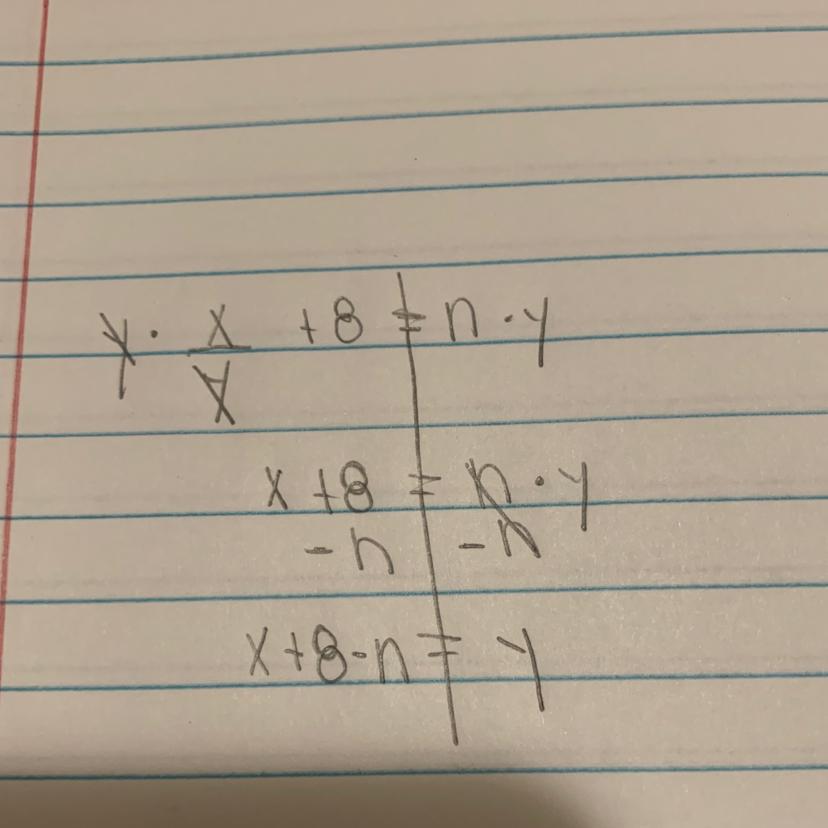 y · x/y + 8 = n · y
x + 8 = n · y
- n - n
x + 8 - n = y